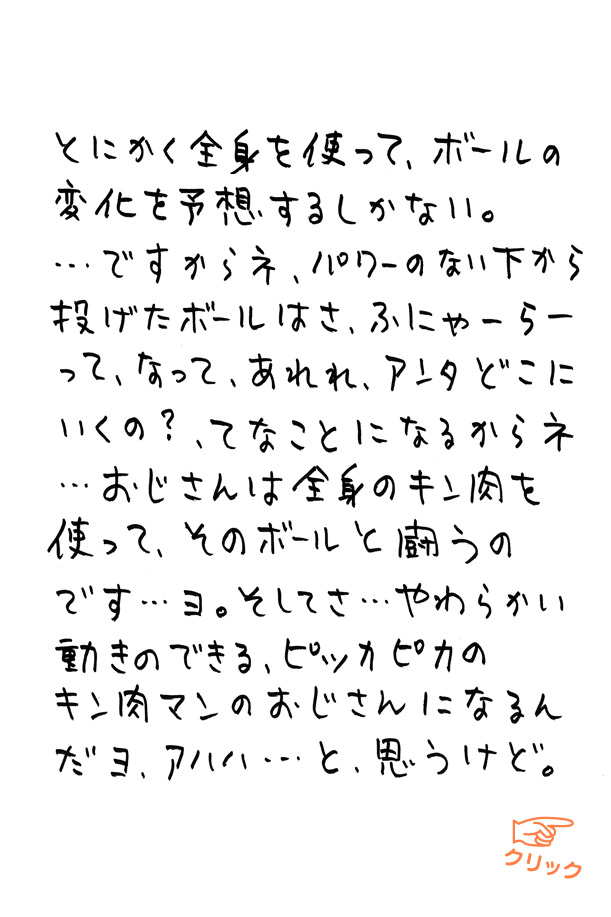 とにかく全身を使って、ボールの
変化を予想するしかない。
…ですからネ、パワーのない下から
投げたボールはさ、ふにゃーらー
って、なって、あれれ、アンタどこに
いくの？、てなことになるからネ
…おじさんは全身のキン肉を
使って、そのボールと闘うの
です…ヨ。そしてさ…やわらかい
動きのできる、ピッカピカの
キン肉マンのおじさんになるん
だヨ、アハハ…と、思うけど。
クリック